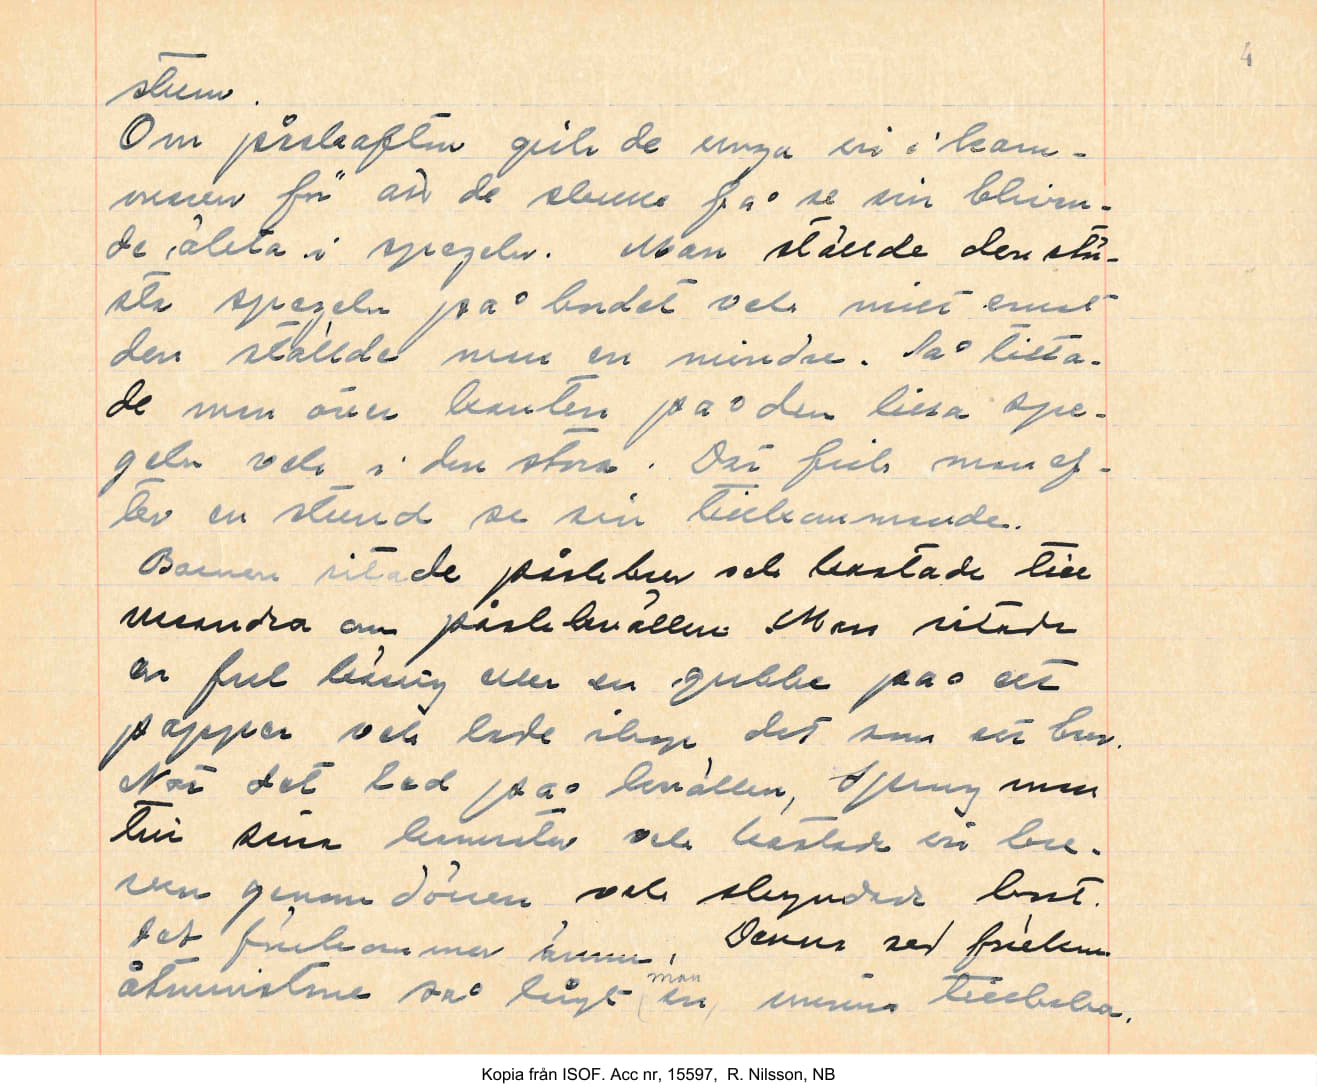 4
stum.
Om påskafton gick de unga in i kam-
maren för att de skulle få se sin bliven-
de äkta i spegeln. Man ställde den stö-
sta spegeln på bordet och mitt emot
den ställde man en mindre. Så titta-
de man över kanten på den lilla spe-
geln och i den stora. Där fick man ef-
ter en stund se sin tillkommande.
Barnen ritade påskbrev och kastade till
varandra om påskkvällen. Man ritade
en ful käring eller en gubbe på ett
papper och lade ihop det som ett brev.
När det led på kvällen, sprang man
till sina kamrater och kastade in bre-
ven genom dörren och skyndade bort.
Det förekommer ännu. Denna sed förekom
åtminstone så långt (en) man minns tillbaka.
Kopia från ISOF. Acc nr, 15597, R. Nilsson, NB